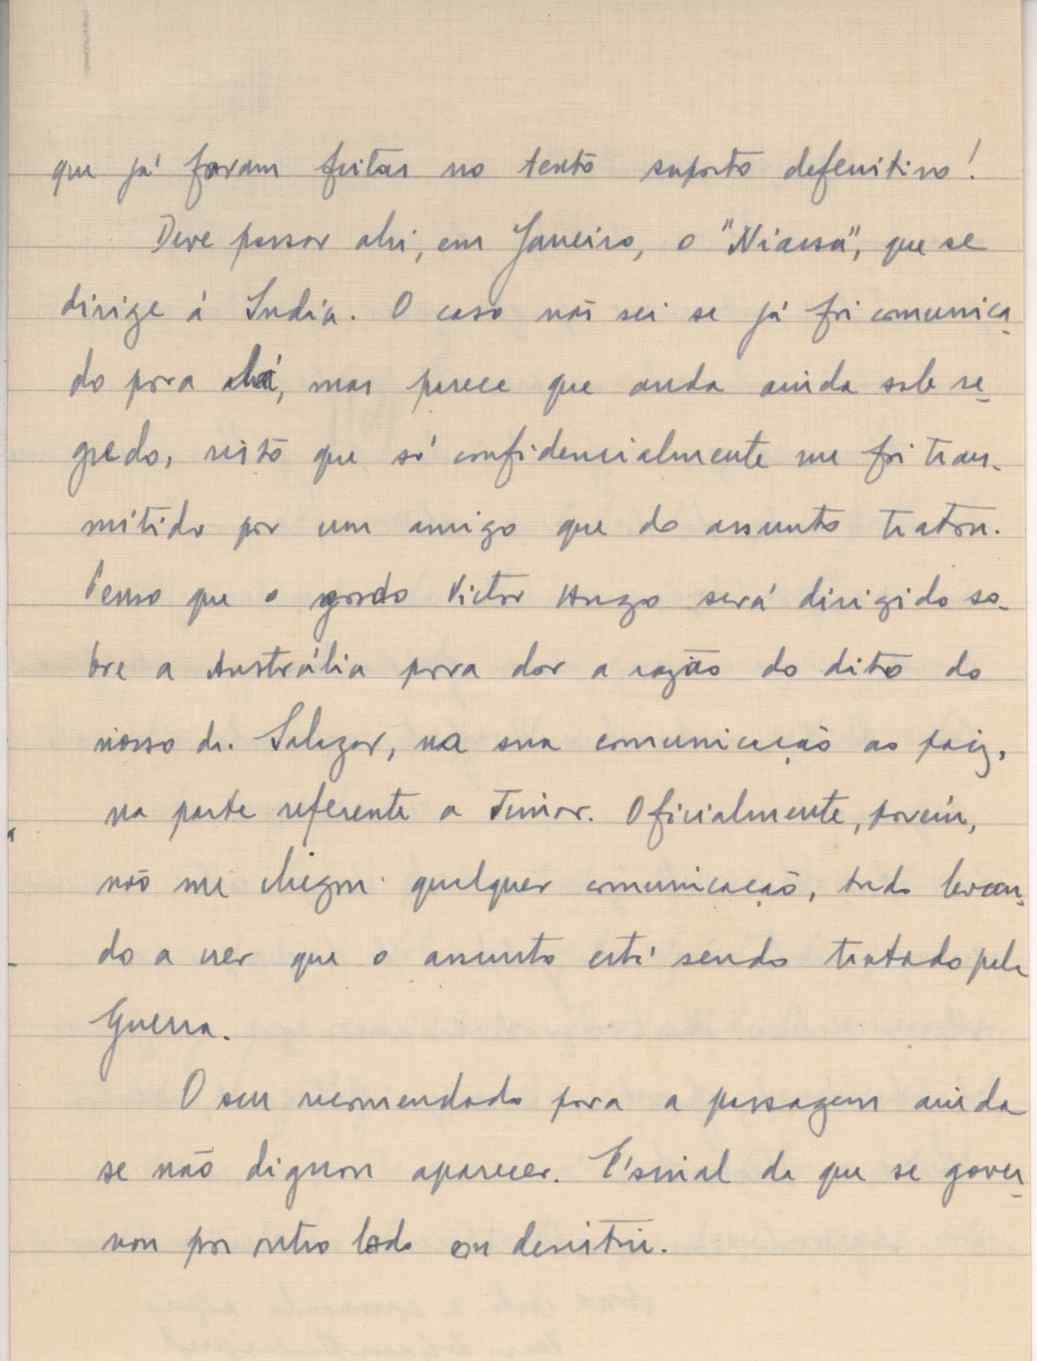 que já foram feitas no texto suposto defenitivo!
Deve passar ahi, em Janeiro, o "Niassa", que se
dirige á India. O caso não sei se já foi comunica-
do para lá, mas parece que anda ainda sob se-
gredo, visto que só confidencialmente me foi trans-
mitido por um amigo que do assunto tratou.
Penso que o gordo Victor Hugo será dirigido so-
bre a Austrália para dar a razão do dito do
nosso dr. Salazar, na sua comunicação ao paiz,
na parte referente a Timor. Oficialmente, porém,
não me chegou qualquer comunicação, tudo levan-
do a crer que o assunto está sendo tratado pela
Guerra.
O seu recomendado para a passagem ainda
se não dignou aparecer. É sinal de que se gover-
nou por outro lado ou desistiu.